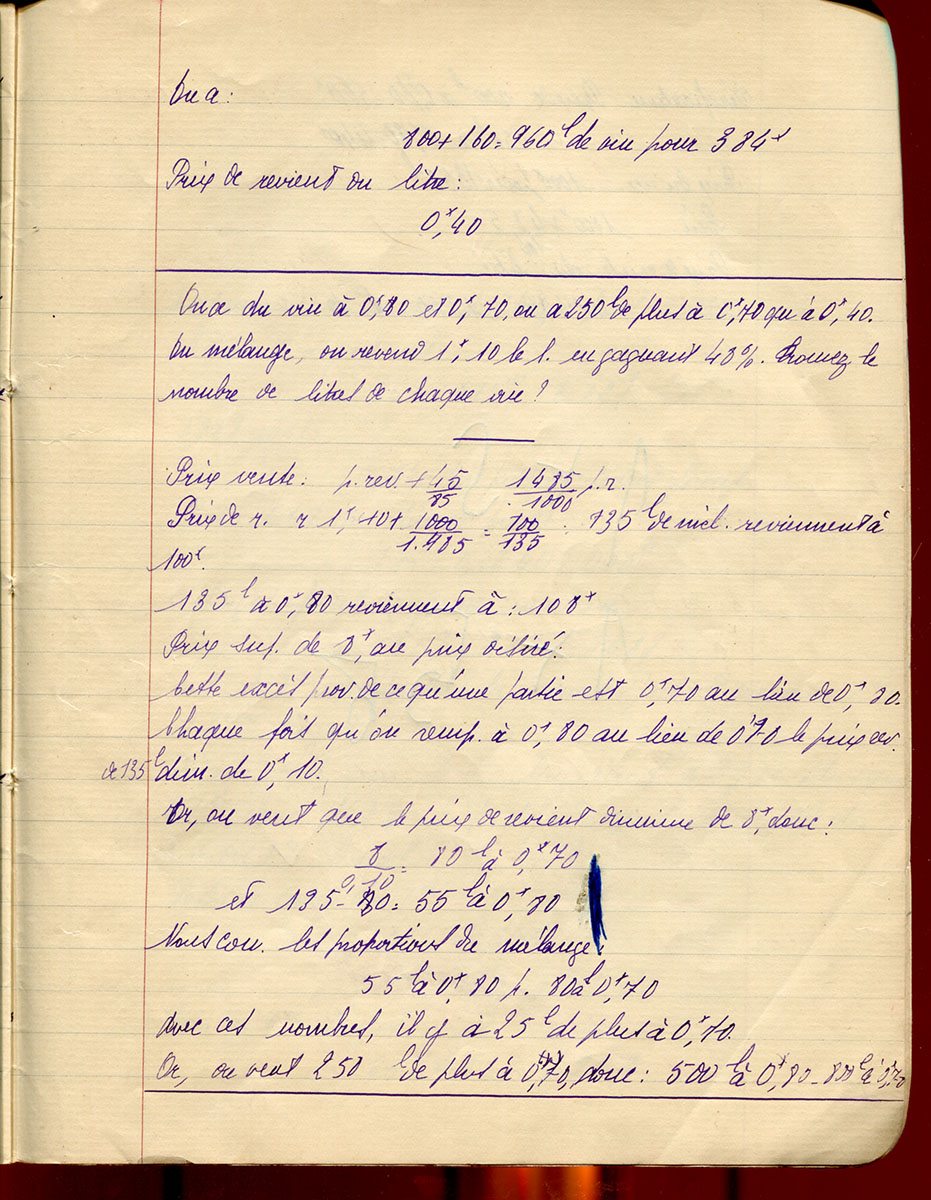 On a:
800 + 160 = 960 l de vin pour 384 f
Prix de revient du litre:
0f,40
On a du vin à 0f,80 et 0f,70, on a 250 l de plus à 0f,70 qu'à 0f,40.
Du mélange, on revend 1f,10 le l. en gagnant 48%. Trouvez le
nombre de litres de chaque vin?
Prix vente: p. rev. + 1485/1000 p.r.
Prix de r. 1000/1.485 = 100/135 : 135 l de mél. reviennent à
100f.
135 l à 0f,80 reviennent à: 108f
Prix sup. de 8f, au prix désiré.
Cette excès prov. de ce qu'une partie est 0f,70 au lieu de 0f,80.
Chaque fois qu'on remp. à 0f,80 au lieu de 0f70 le prix rev.
de 135 l dim. de 0f,10.
Or, on veut que le prix de revient diminue de 8f, donc:
8/0,10 = 80 l à 0f70
et 135 - 80 = 55 l à 0f,80
Nous con. les proportions du mélange:
55 l à 0f,80 p. 80 l à 0f,70
Avec ces nombres, il y à 25 l de plus à 0f,70.
Or, on veut 250 l de plus à 0f,70, donc: 500 l à 0f,80 - 800 l à 0f,70